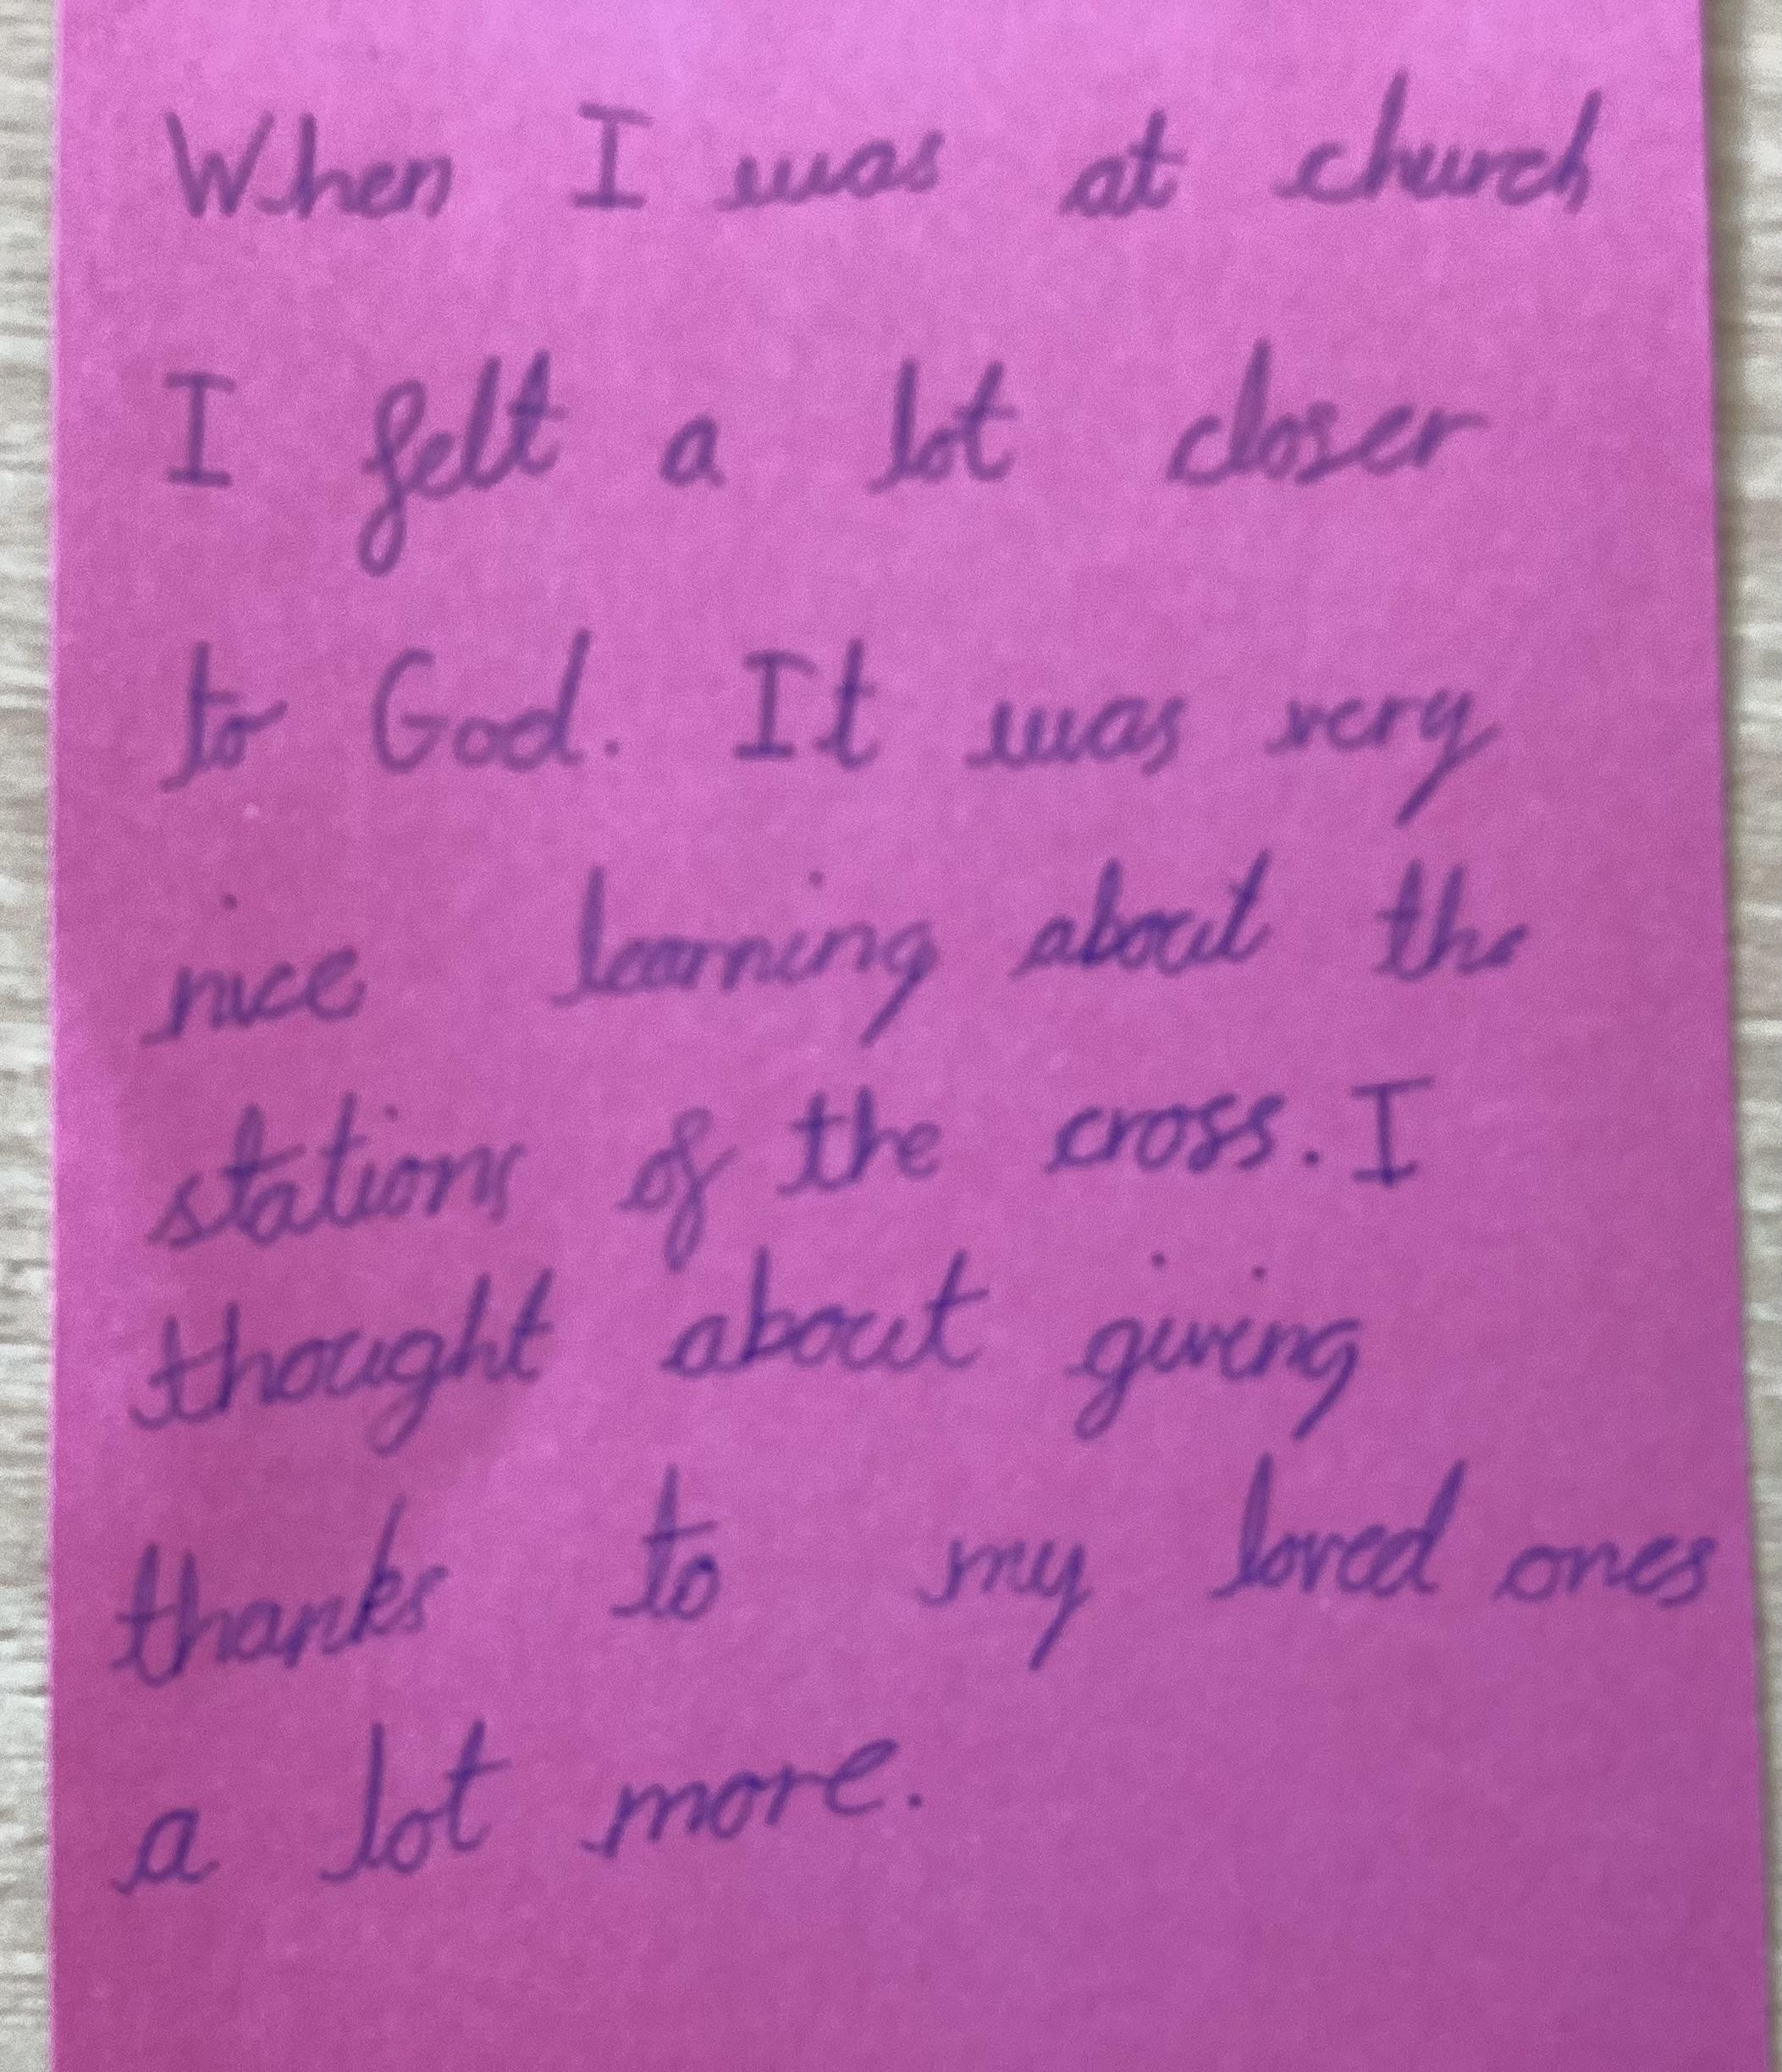 When I was at church
I felt a lot closer
to God. It was very
nice learning about the
stations of the cross. I
thought about giving
thanks to my loved ones
a lot more.